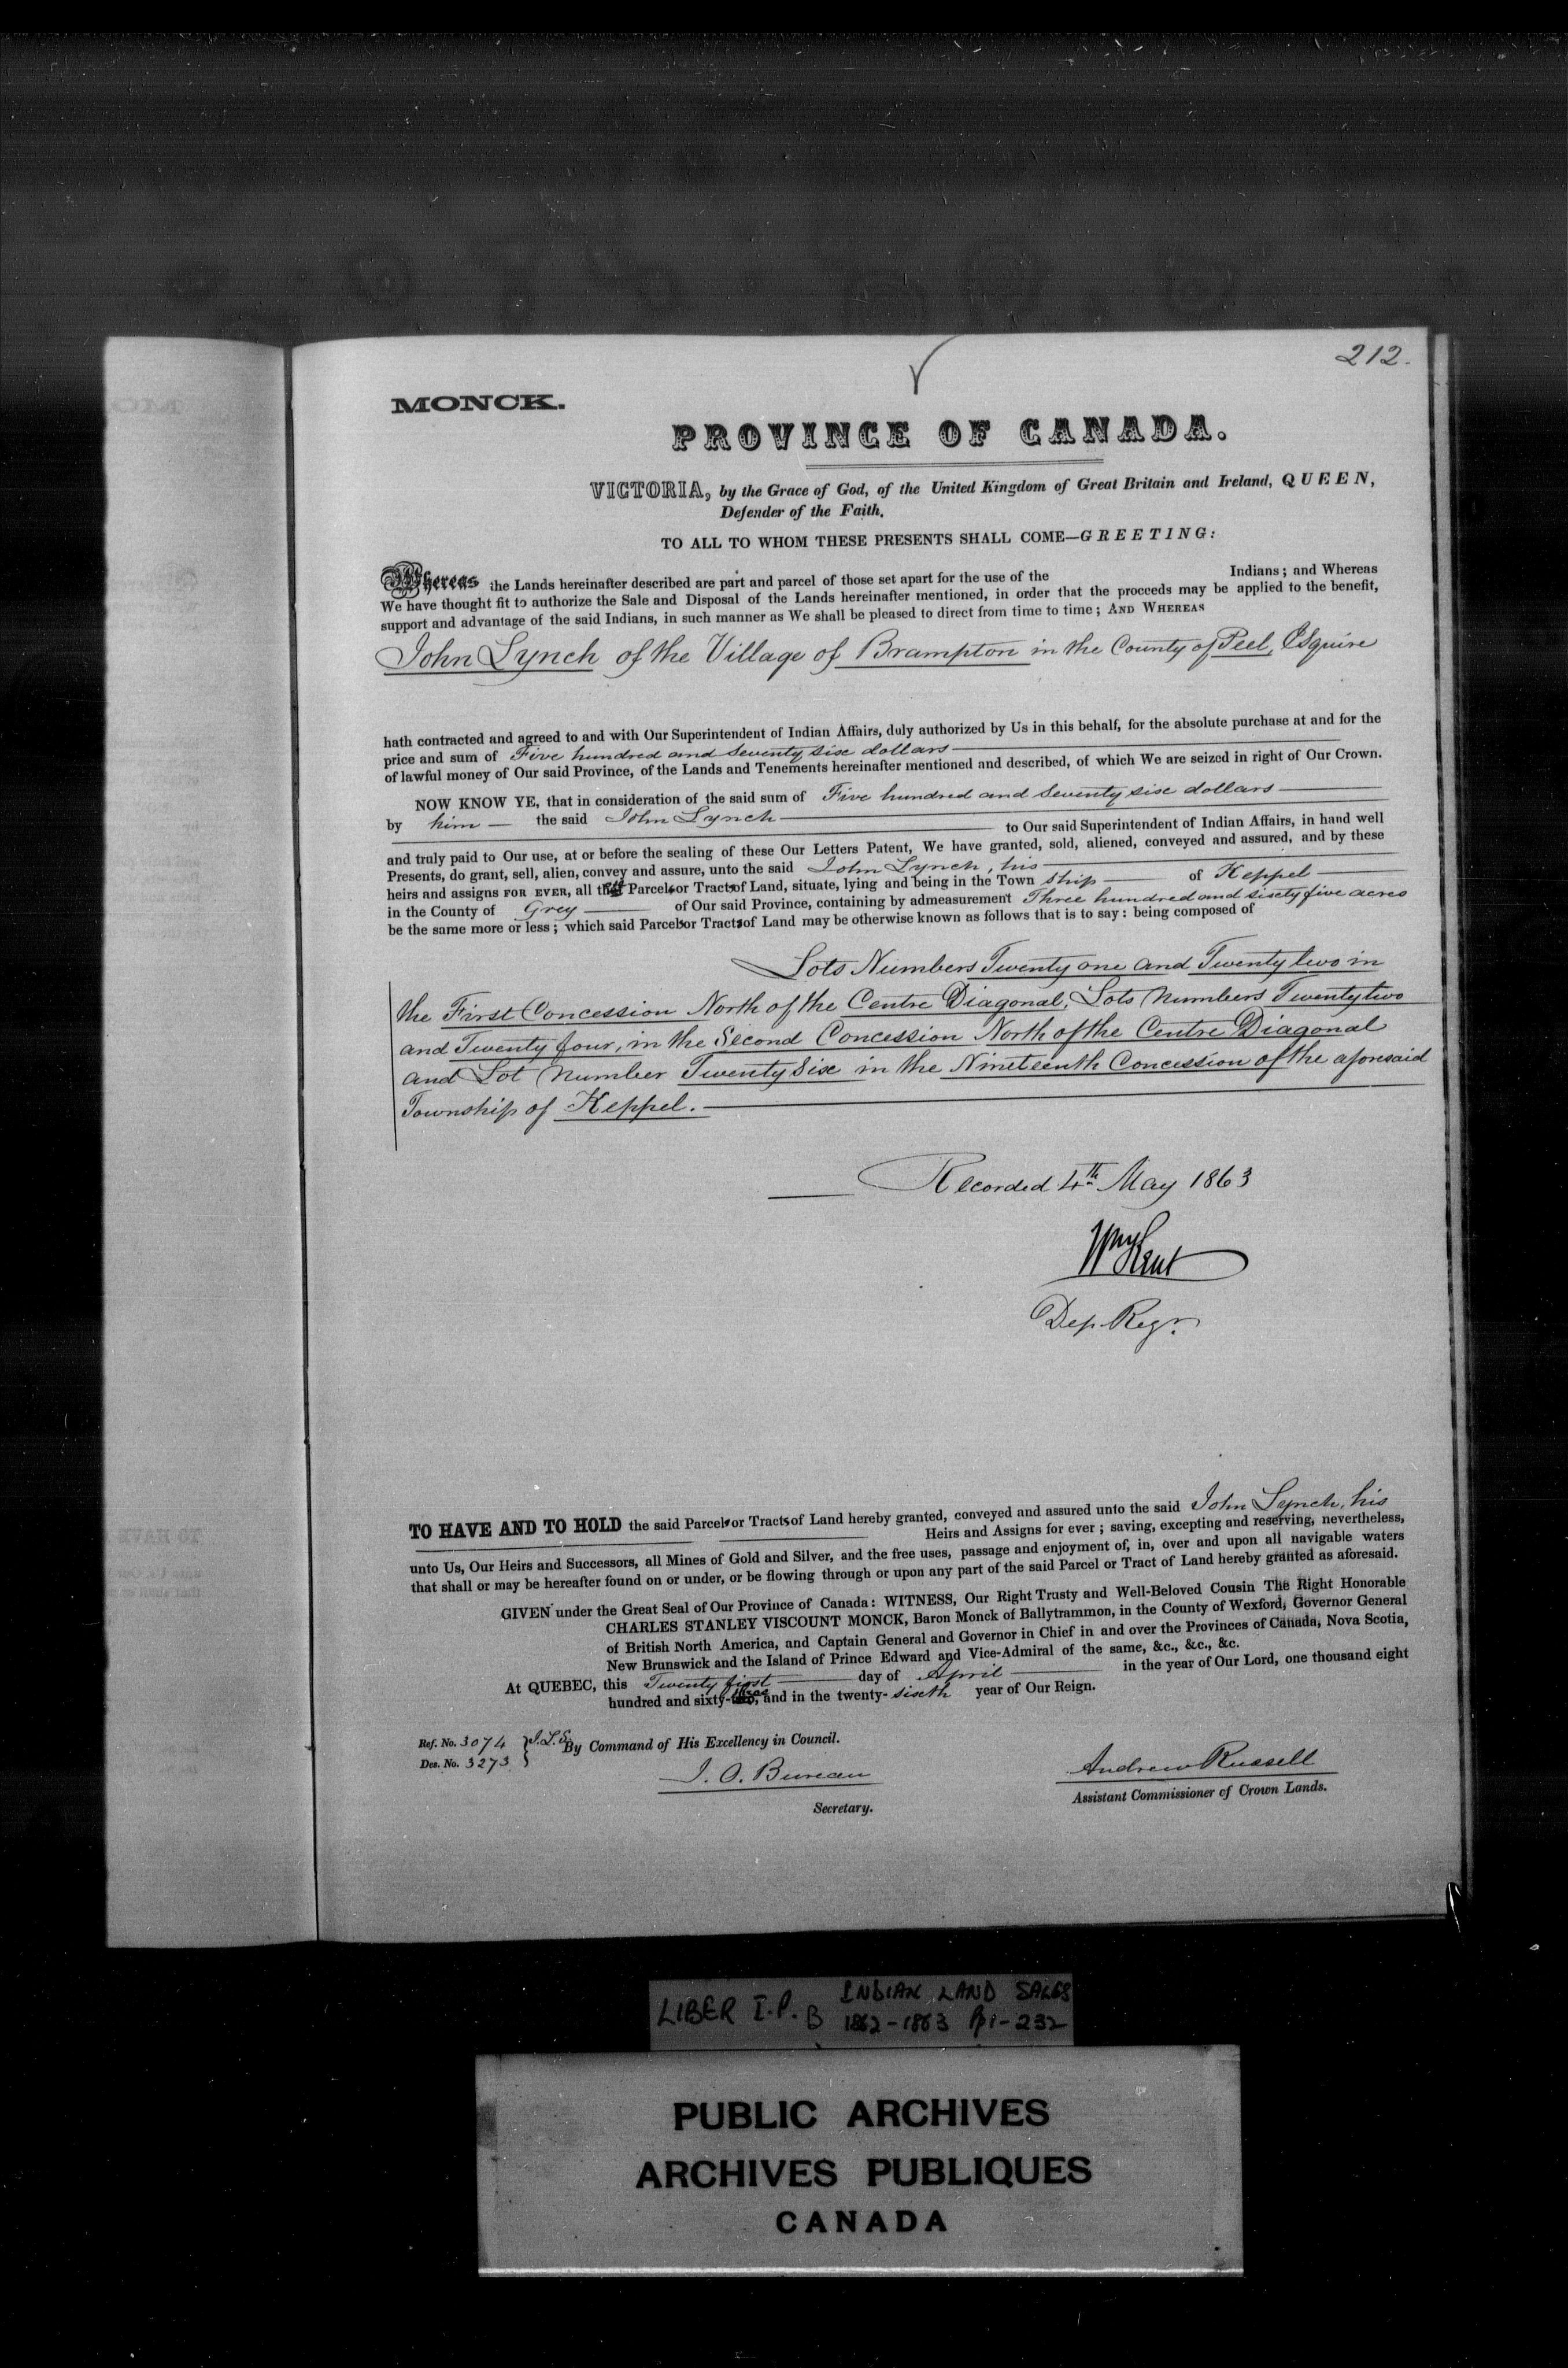 212.
MONCK.
PROVINCE OF CANADA.
VICTORIA, by the Grace of God, of the United Kingdom of Great Britain and Ireland, QUEEN,
Defender of the Faith.
TO ALL TO WHOM THESE PRESENTS SHALL COME—GREETING:
Whereas the Lands hereinafter described are part and parcel of those set apart for the use of the Indians; and Whereas
We have thought fit to authorize the Sale and Disposal of the Lands hereinafter mentioned, in order that the proceeds may be applied to the benefit,
support and advantage of the said Indians, in such manner as We shall be pleased to direct from time to time; AND WHEREAS
John Lynch of the Village of Brampton in the County of Peel, Esquire
hath contracted and agreed to and with Our Superintendent of Indian Affairs, duly authorized by Us in this behalf, for the absolute purchase at and for the
price and sum of Five hundred and Seventy six dollars
of lawful money of Our said Province, of the Lands and Tenements hereinafter mentioned and described, of which We are seized in right of Our Crown.
NOW KNOW YE, that in consideration of the said sum of Five hundred and Seventy six dollars
by him — the said John Lynch to Our said Superintendent of Indian Affairs, in hand well
and truly paid to Our use, at or before the sealing of these Our Letters Patent, We have granted, sold, aliened, conveyed and assured, and by these
Presents, do grant, sell, alien, convey and assure, unto the said John Lynch, his
heirs and assigns FOR EVER, all those Parcels or Tracts of Land, situate, lying and being in the Town ship of Keppel
in the County of Grey of Our said Province, containing by admeasurement Three hundred and sixty five acres
be the same more or less; which said Parcels or Tracts of Land may be otherwise known as follows that is to say: being composed of
Lots Numbers Twenty one and Twenty two in
the First Concession North of the Centre Diagonal, Lots Numbers Twenty two
and Twenty four, in the Second Concession North of the Centre Diagonal
and Lot Number Twenty Six in the Nineteenth Concession of the aforesaid
Township of Keppel.
Recorded 4th May 1863
Wm Kent
Dep. Regr.
TO HAVE AND TO HOLD the said Parcels or Tracts of Land hereby granted, conveyed and assured unto the said John Lynch, his
Heirs and Assigns for ever; saving, excepting and reserving, nevertheless,
unto Us, Our Heirs and Successors, all Mines of Gold and Silver, and the free uses, passage and enjoyment of, in, over and upon all navigable waters
that shall or may be hereafter found on or under, or be flowing through or upon any part of the said Parcel or Tract of Land hereby granted as aforesaid.
GIVEN under the Great Seal of Our Province of Canada: WITNESS, Our Right Trusty and Well-Beloved Cousin The Right Honorable
CHARLES STANLEY VISCOUNT MONCK, Baron Monck of Ballytrammon, in the County of Wexford, Governor General
of British North America, and Captain General and Governor in Chief in and over the Provinces of Canada, Nova Scotia,
New Brunswick and the Island of Prince Edward and Vice-Admiral of the same, &c., &c., &c.
At QUEBEC, this Twenty first day of April in the year of Our Lord, one thousand eight
hundred and sixty-three, and in the twenty-sixth year of Our Reign.
Ref. No. 3074 J.L.S. By Command of His Excellency in Council.
Des. No. 3273
J. O. Bureau
Secretary.
Andrew Russell
Assistant Commissioner of Crown Lands.
LIBER I.P. B INDIAN LAND SALES
1862-1863 Pp 1-232
PUBLIC ARCHIVES
ARCHIVES PUBLIQUES
CANADA